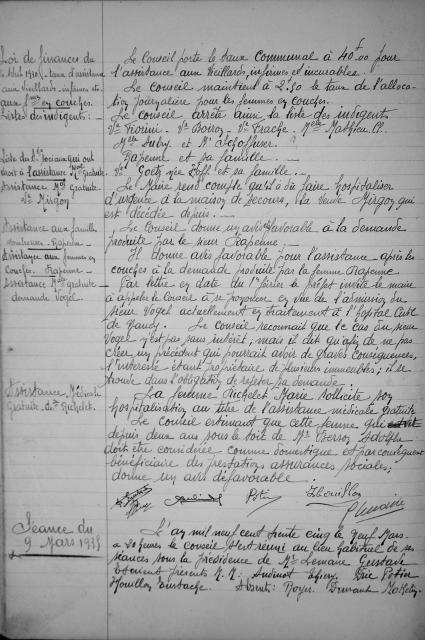 Loi de finances du
aux Vieillards, infirmes et
aux f^mes en couches.
Listes des indigents : _
Le Conseil porte le taux communal à 40f.00 pour
l'assistance aux Vieillards, infirmes et incurables.
Le conseil maintient à 2.50 le taux de l'alloca-
tion journalière pour les femmes en couches.
Le conseil arrête ainsi la liste des indigents
V^ve Fiorini. V^ve Mathieu
M^elle
Rapenne et sa famille _
V^ve Goetz et sa famille _
droit à l'assistance M^le gratuite
Assistance M^le gratuite
V^ve Mirgon
Le Maire rend compte qu'il a dû faire hospitaliser
d'urgence à la maison de Secours, la veuve Mirgon qui
est décédée depuis. _
Assistance aux familles
nombreuses _ Rapenne _
Assistance aux femmes en
couches. Rapenne _
Assistance M^le gratuite _
demande Vogel _
Le Conseil donne un avis favorable à la demande
produite par le sieur Rapenne _
Il donne avis favorable pour l'assistance après les
couches à la demande produite par la femme Rapenne
Par lettre en date du 1er février le préfet invite le maire
à appeler le Conseil à se prononcer en vue de l'admission du
sieur Vogel actuellement en traitement à l'hôpital
de Nancy. Le Conseil reconnait que le cas du sieur
Vogel n'est pas sans intérêt, mais il dit qu'afin de ne pas
créer un précédent qui pourrait avoir de graves conséquences,
l'intéressé étant propriétaire de plusieurs immeubles ; il se
trouve dans l'obligation de rejeter sa demande.
Assistance Médicale
Gratuite. Richelet.
La femme Richelet Marie sollicite son
hospitalisation au titre de l'assistance médicale gratuite
Le Conseil estimant que cette femme qui
depuis deux ans sous le toit de M^r Adolphe
doit être considérée comme domestique et par conséquent
bénéficiaire des prestations assurances sociales ;
donne un avis défavorable
Potin
Houillon
Lemaire
Séance du
9 Mars 1935
L'an mil neuf cent trente cinq le neuf Mars
à 20 heures le conseil s'est réuni au lieu habituel de ses
séances sous la présidence de M^r Lemaire Gustave
Etaient présents M.M. Audinot Potin
Houillon Eustache. Absents : Royer. Durand